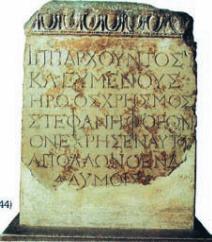 ΙΠΠΑΡΧΟΥΝΤΟΣ
ΚΛΕΥΜΕΝΟΥΣ
ΗΡΩΟΣ ΧΡΗΣΜΟΣ
ΣΤΕΦΑΝΗΦΟΡΟΝ
ΟΝ ΕΧΡΗΣΕΝ ΑΥΤΩ
ΑΠΟΛΛΩΝ Ο ΕΝ Δ
ΔΥΜΟΙΣ
44)